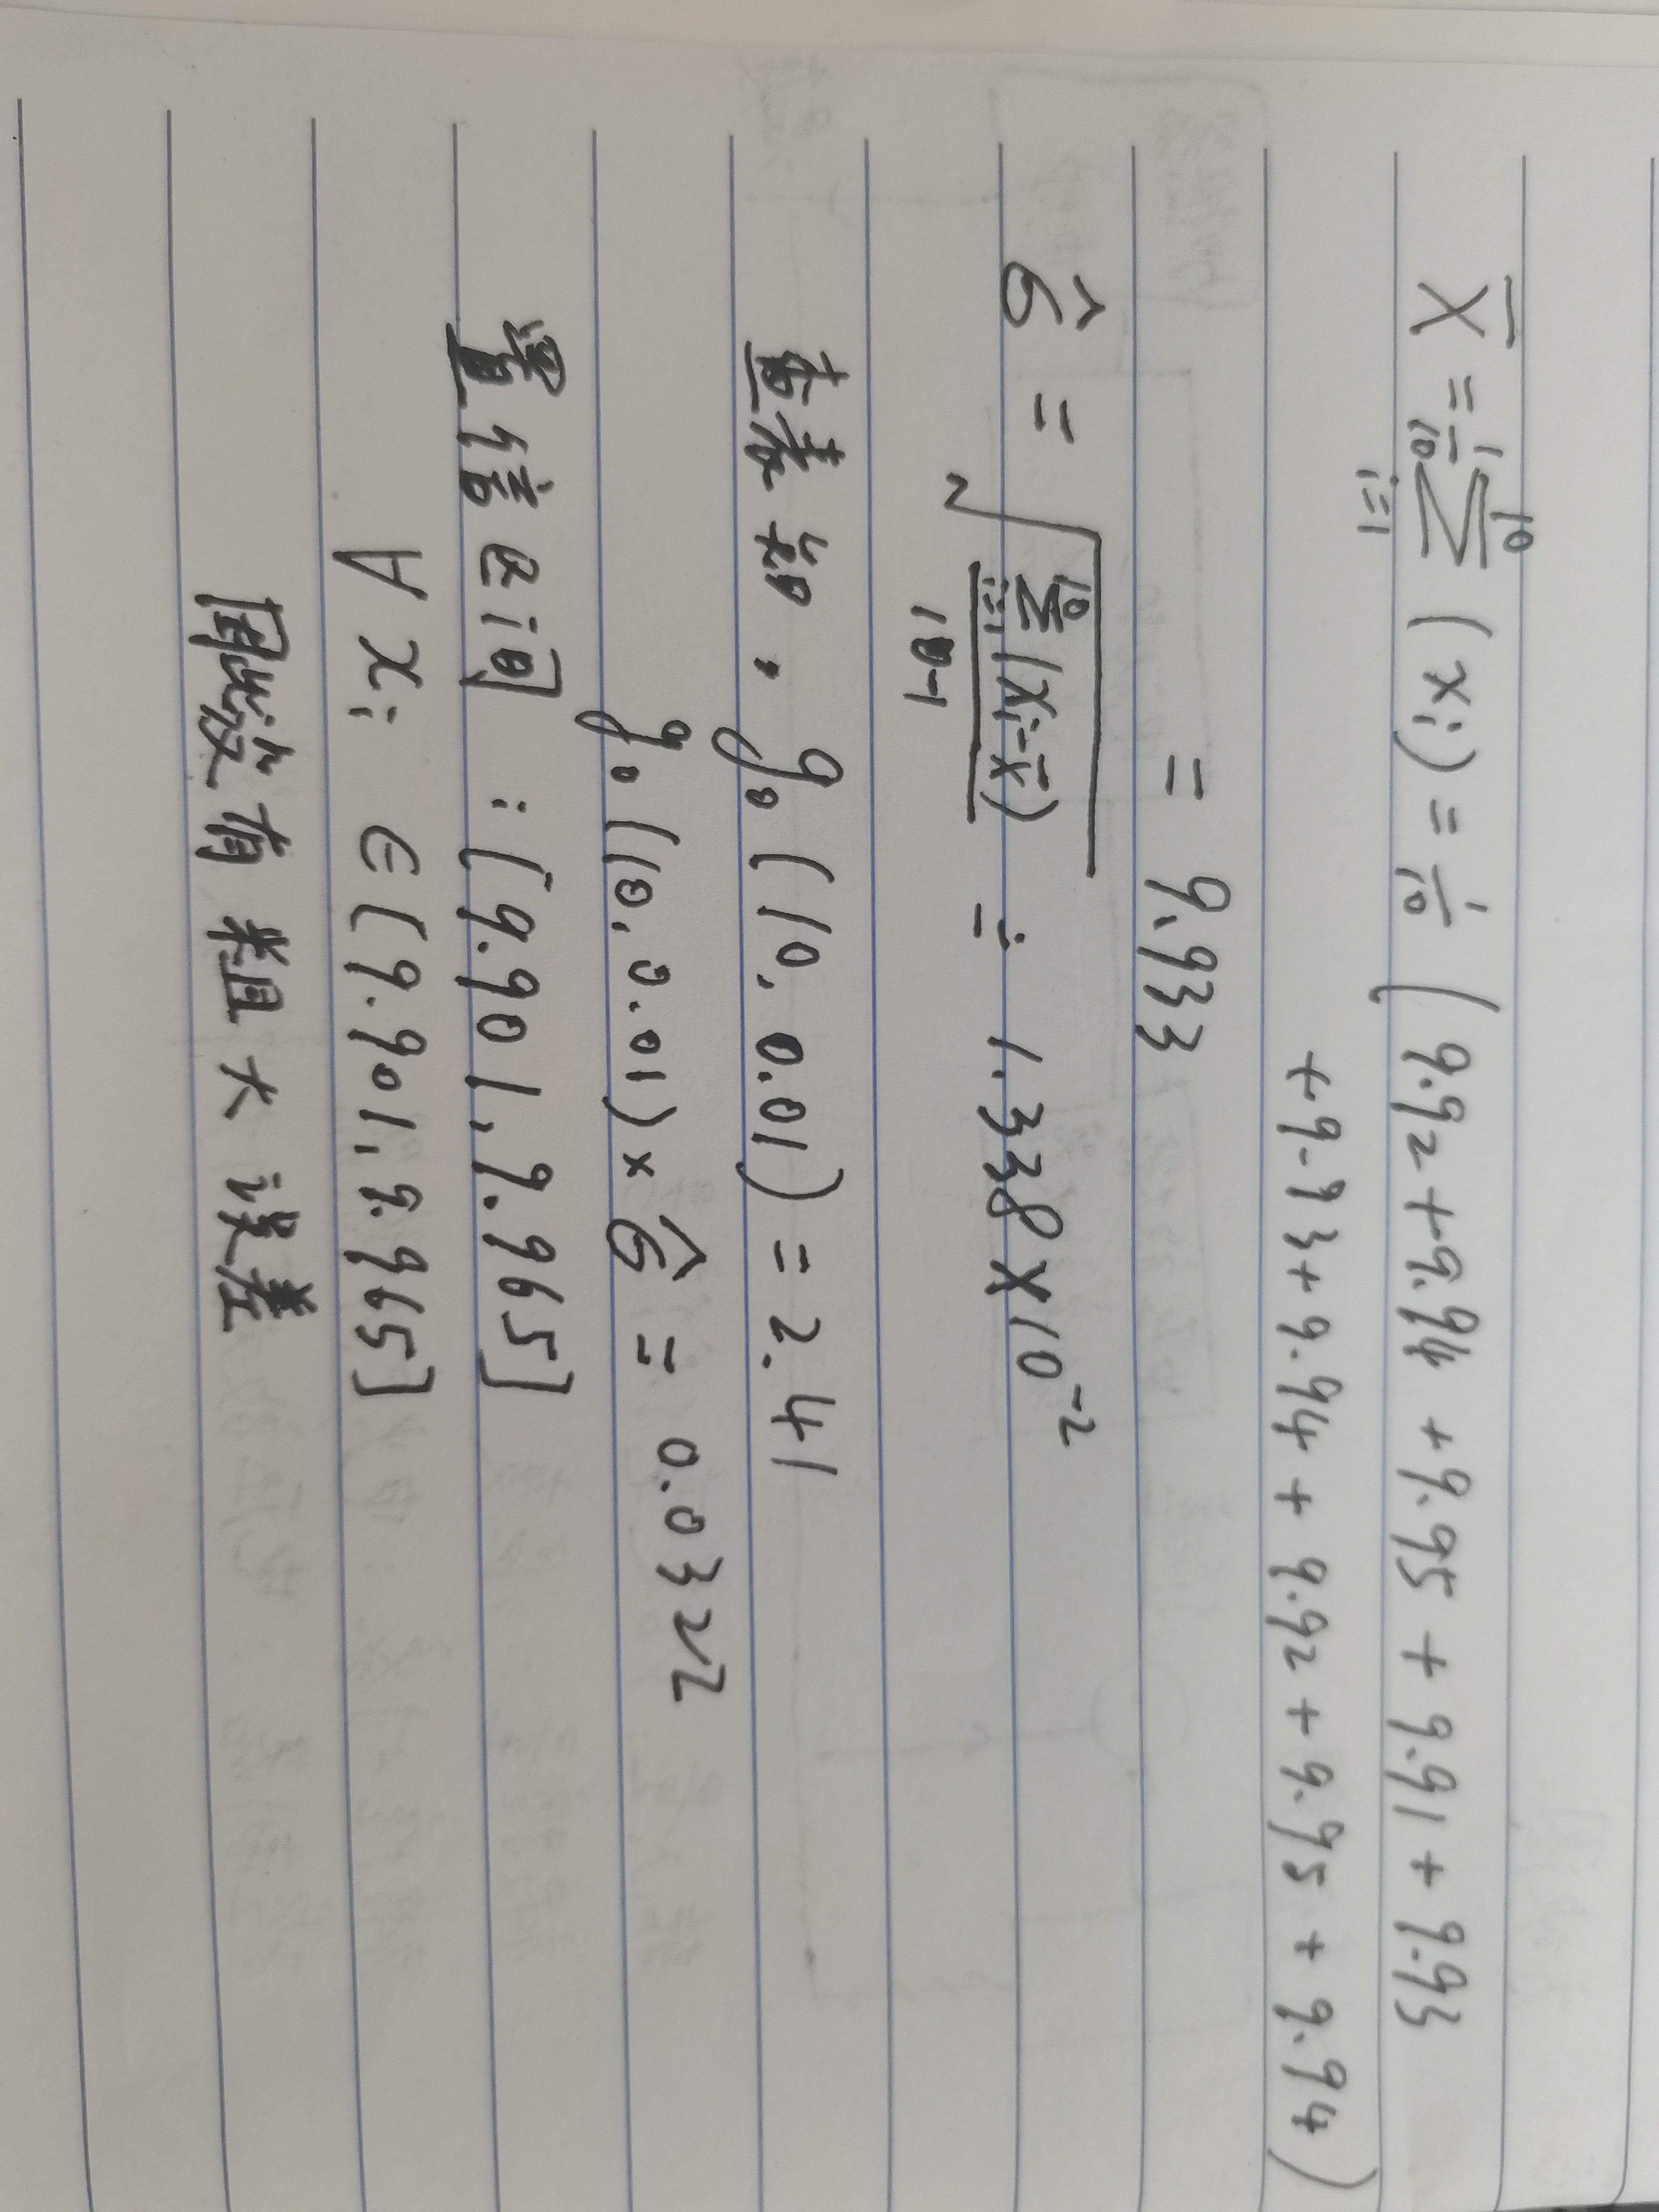 X̄ = 1/10 ∑_{i=1}^{10} (xᵢ) = 1/10 ( 9.92 + 9.94 + 9.95 + 9.91 + 9.93
+ 9.93 + 9.94 + 9.92 + 9.95 + 9.94 )
= 9.933
σ̂ = √( ∑_{i=1}^{10} (xᵢ - x̄) / 10-1 ) = 1.338 × 10⁻²
查表知, g₀ (10, 0.01) = 2.41
g₀ (10, 0.01) × σ̂ = 0.0322
置信区间 : [9.901, 9.965]
∀ xᵢ ∈ [9.901, 9.965]
因此没有粗大误差